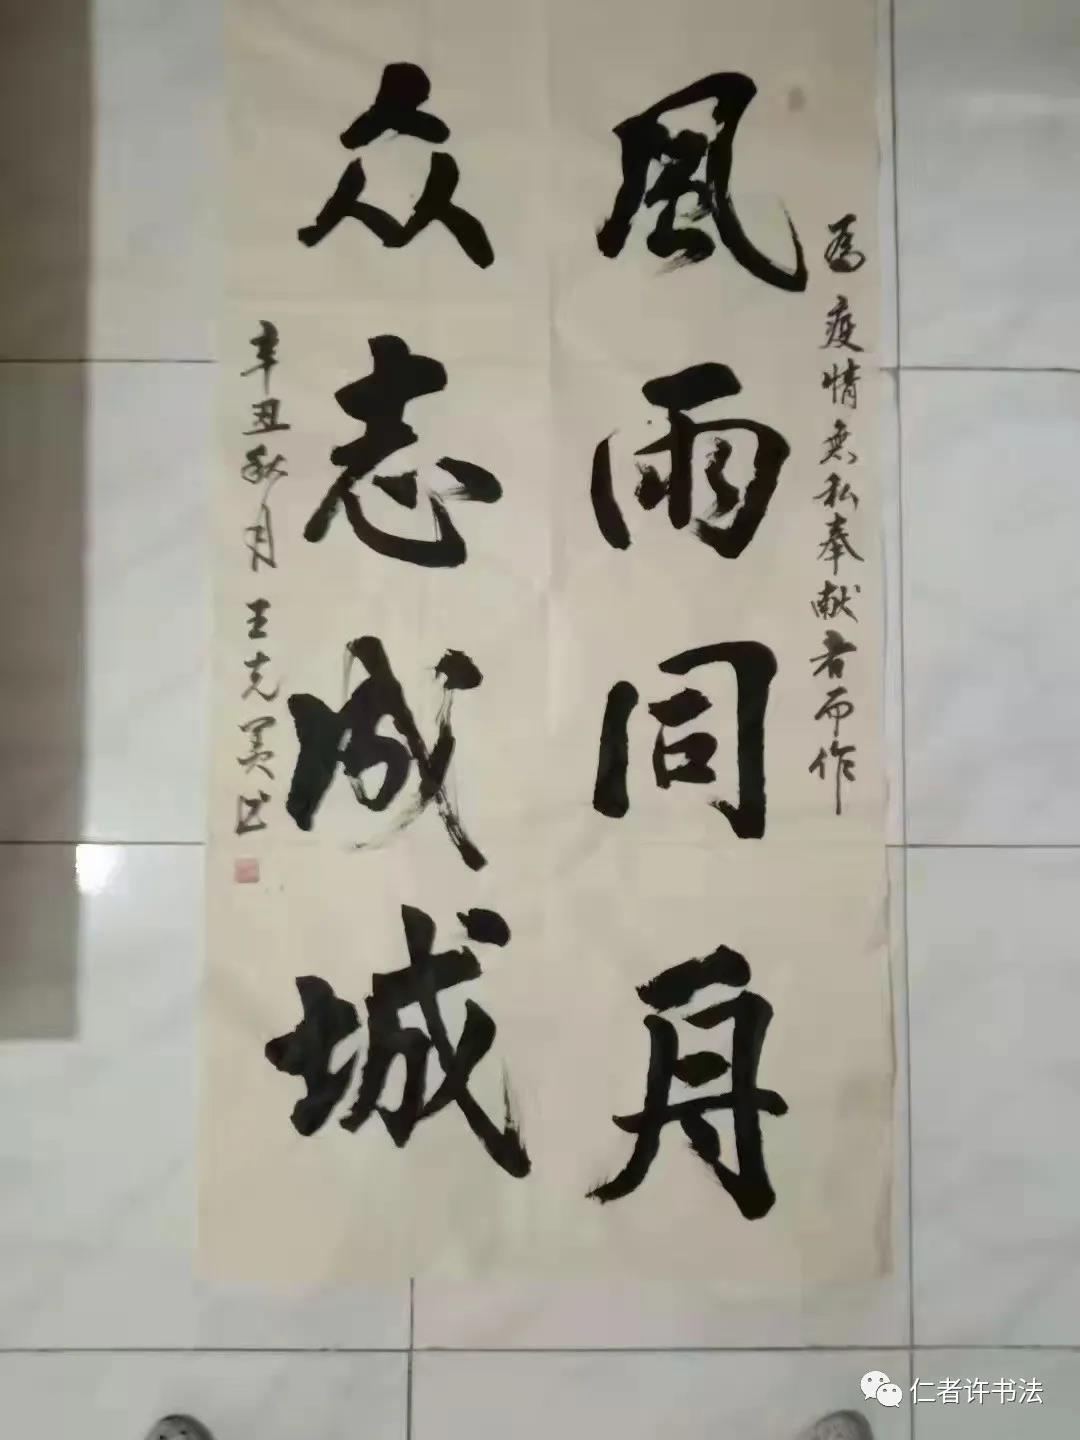 为疫情无私奉献者而作
風雨同舟
众志成城
辛丑秋月王克美书
仁者许书法